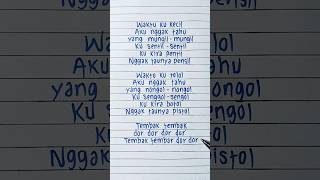 Waktu ku kecil
Aku nggak tahu
yang mungil-mungil
Ku sentil-sentil
Ku kira pentil
Nggak taunya pensil
Waktu ku tolol
Aku nggak tahu
yang nongol-nongol
Ku senggol-sengol
Ku kira botol
Nggak taunya pistol
Tembak tembak
dor dor dor dor
Tembak tembar dor dor